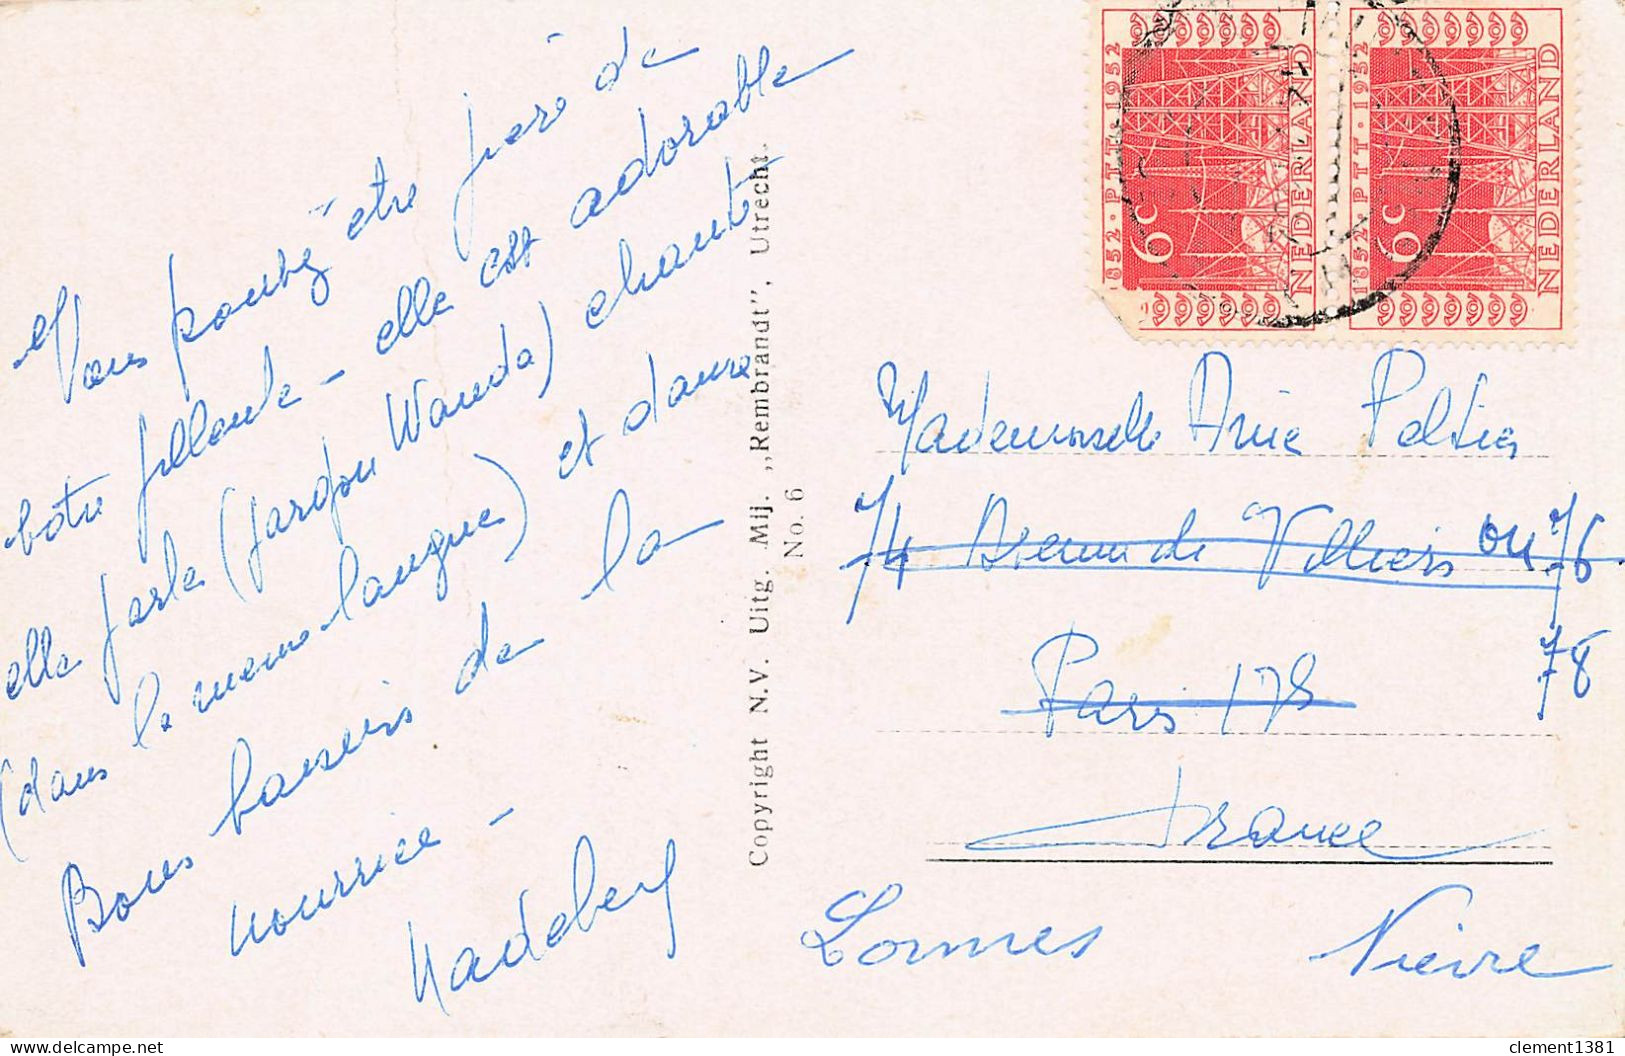 Vous pouvez être fière de
votre fillente - elle est adorable
elle parle (jargon Wanda) chante
(dans le meme langue) et danse
Bons baisers de la
nourrice -
Madeberf
Copyright N.V. Uitg. Mij. ,,Rembrandt", Utrecht.
No. 6
1852·PTT·1952
6c
NEDERLAND
1852·PTT·1952
6c
NEDERLAND
Mademoiselle Anie Peltier
74 Avenue de Villiers ou 76
78
Paris 17e
France
Lormes Nièvre
clement1381